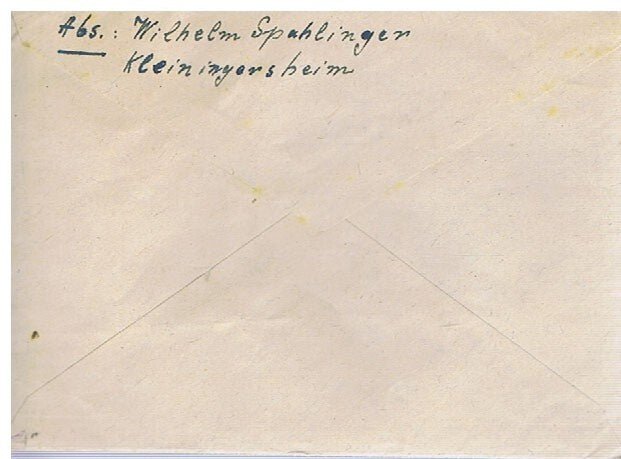 Abs.: Wilhelm Spahlinger
Kleiningersheim